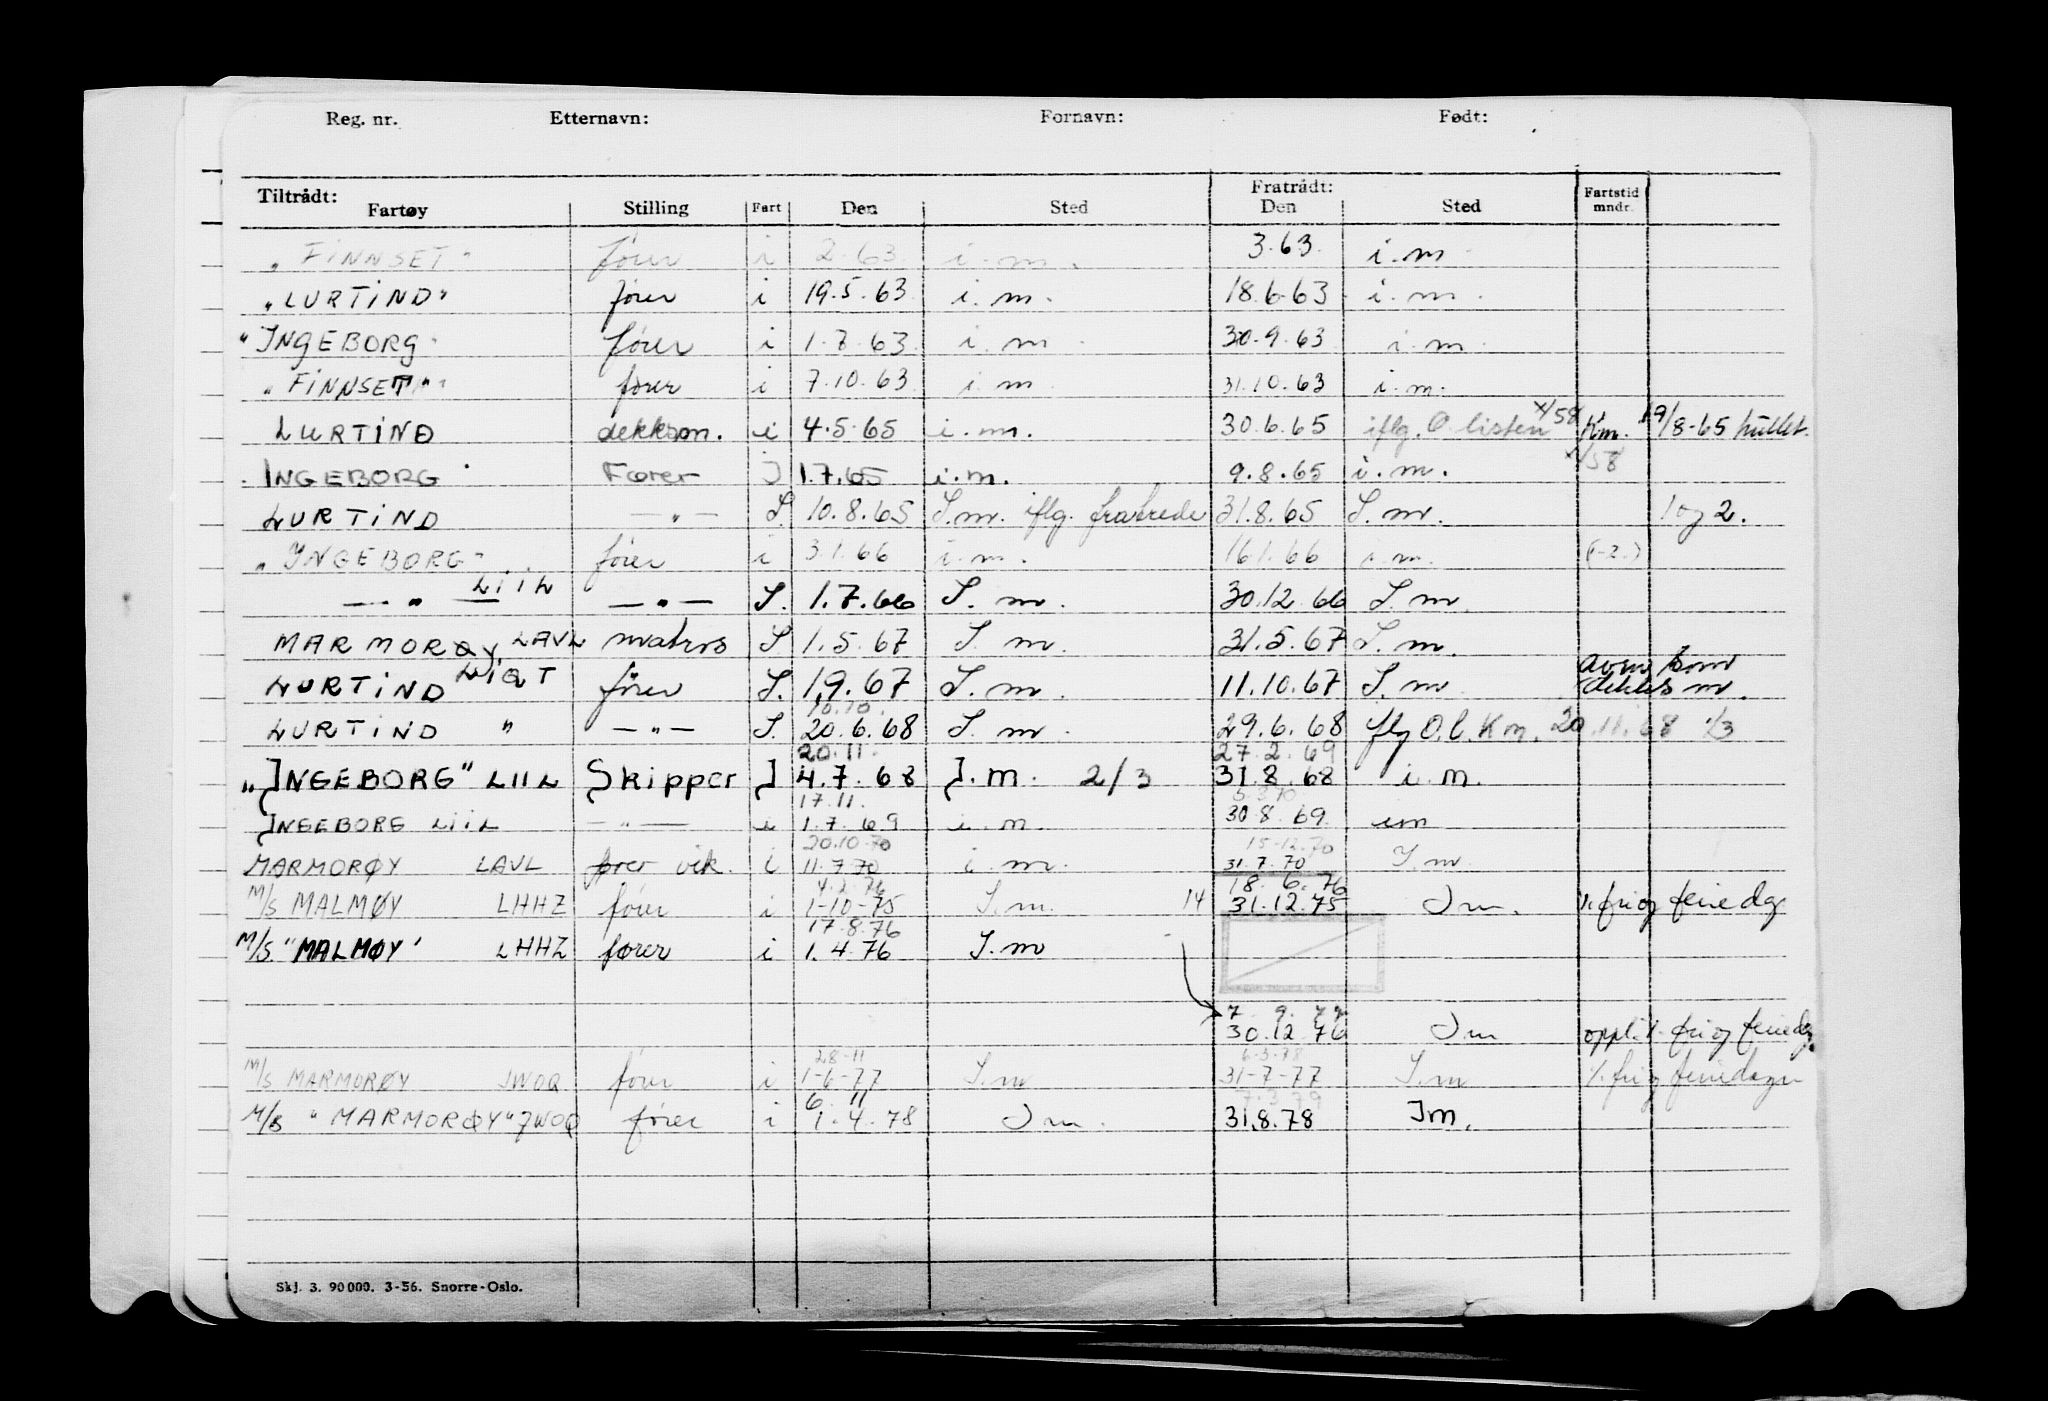 Reg. nr. Etternavn: Fornavn: Født:
Tiltrådt: Fratrådt: Fartstid
Fartøy Stilling Fart Den Sted Den Sted mndr.
" FINNSET " fører i 2.63 i.m. 3.63 i.m
"LURTIND" fører i 19.5.63 i.m. 18.6.63 i.m.
"INGEBORG" fører i 1.7.63 i.m. 30.9.63 i.m.
"FINNSET" fører i 7.10.63 i.m. 31.10.63 i.m.
LURTIND dekksm. i 4.5.65 i.m. 30.6.65 iflg. O listen x/58 Km. 19/8-65 hullet.
INGEBORG Fører I 1.7.65 i.m. 9.8.65 i.m. x/58
LURTIND —"— I. 10.8.65 I.m. iflg. fratrede 31.8.65 I.m. 1 og 2.
"INGEBORG" fører i 3.1.66 i.m. 16.1.66 i.m. (-2.)
—"— LIIL —"— I. 1.7.66 I.m. 30.12.66 I.m.
MARMORØY LAVL matros I 1.5.67 I.m. 31.5.67 I.m.
LURTIND LIQT fører I. 1.9.67 I.m. 11.10.67 I.m. som dekksm.
10.10.
LURTIND " —"— I. 20.6.68 I.m. 29.6.68 iflg O.l. Km. 20.11.68 1/3
20.11. 27.2.69
"INGEBORG" LIIL Skipper I 4.7.68 I.m. 2/3 31.8.68 i.m.
17.11. 5.3.70
INGEBORG LIIL —"— i 1.7.69 i.m. 30.8.69 im
20.10.70 15-12.70
MARMORØY LAVL fører vik. i 11.7.70 i.m. 31.7.70 I.m.
4.2.76 18.6.76
M/S MALMØY LHHZ fører i 1-10-75 I.m. 14 31.12.75 Im. %. fri og feriedag
17.8.76
M/S. "MALMØY" LHHZ fører i 1.4.76 I.m
7.9.77
30.12.76 Im oppl. %. fri og feriedg.
28-11 6.3.78
M/S MARMORØY JWOQ fører i 1-6-77 I.m 31-7-77 I.m %. fri og feriedager
6.11 7.3.79
M/S "MARMORØY" JWOQ fører i 1.4.78 Im. 31.8.78 Im.
Skj. 3. 90 000. 3-56. Snorre-Oslo.